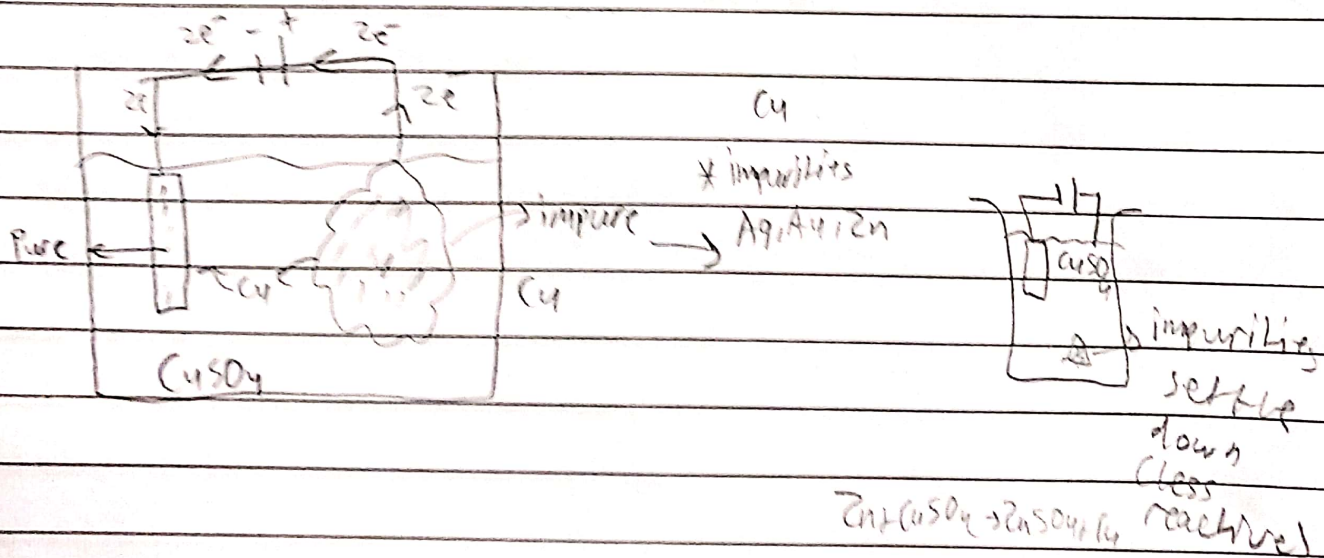 2e⁻ - + 2e⁻
2e 2e
Cu
* impurities
impure → Ag, Au, Zn
Pure
Cu
Cu
CuSO4
CuSO4
impurities
settle
down
(less
reactive)
Zn + CuSO4 → ZnSO4 + Cu